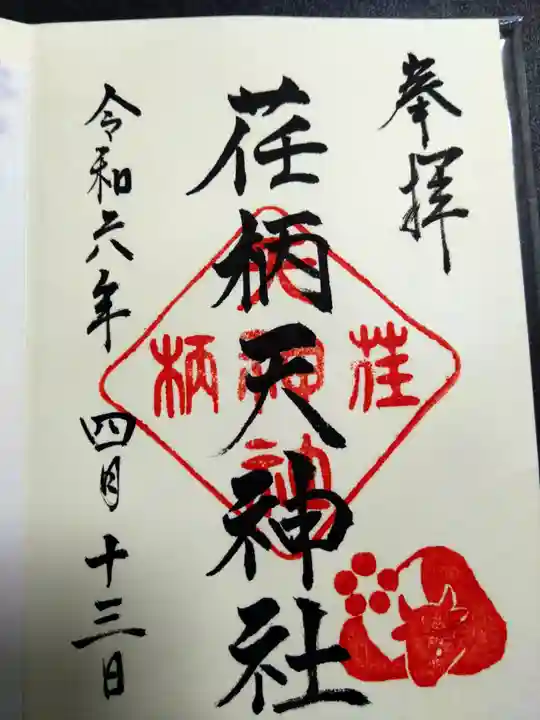 奉拝
荏柄天神社
令和六年 四月十三日
荏
柄
天
神
社